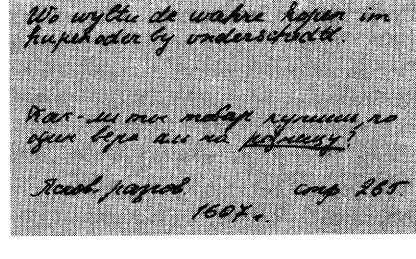 Wo wyltu de wahre kopen im
hupen oder by underschedtl.
Как-ли ты товар купишь, по
один вера али на розницу?
Псков. разгов. стр 265.
1607 г.